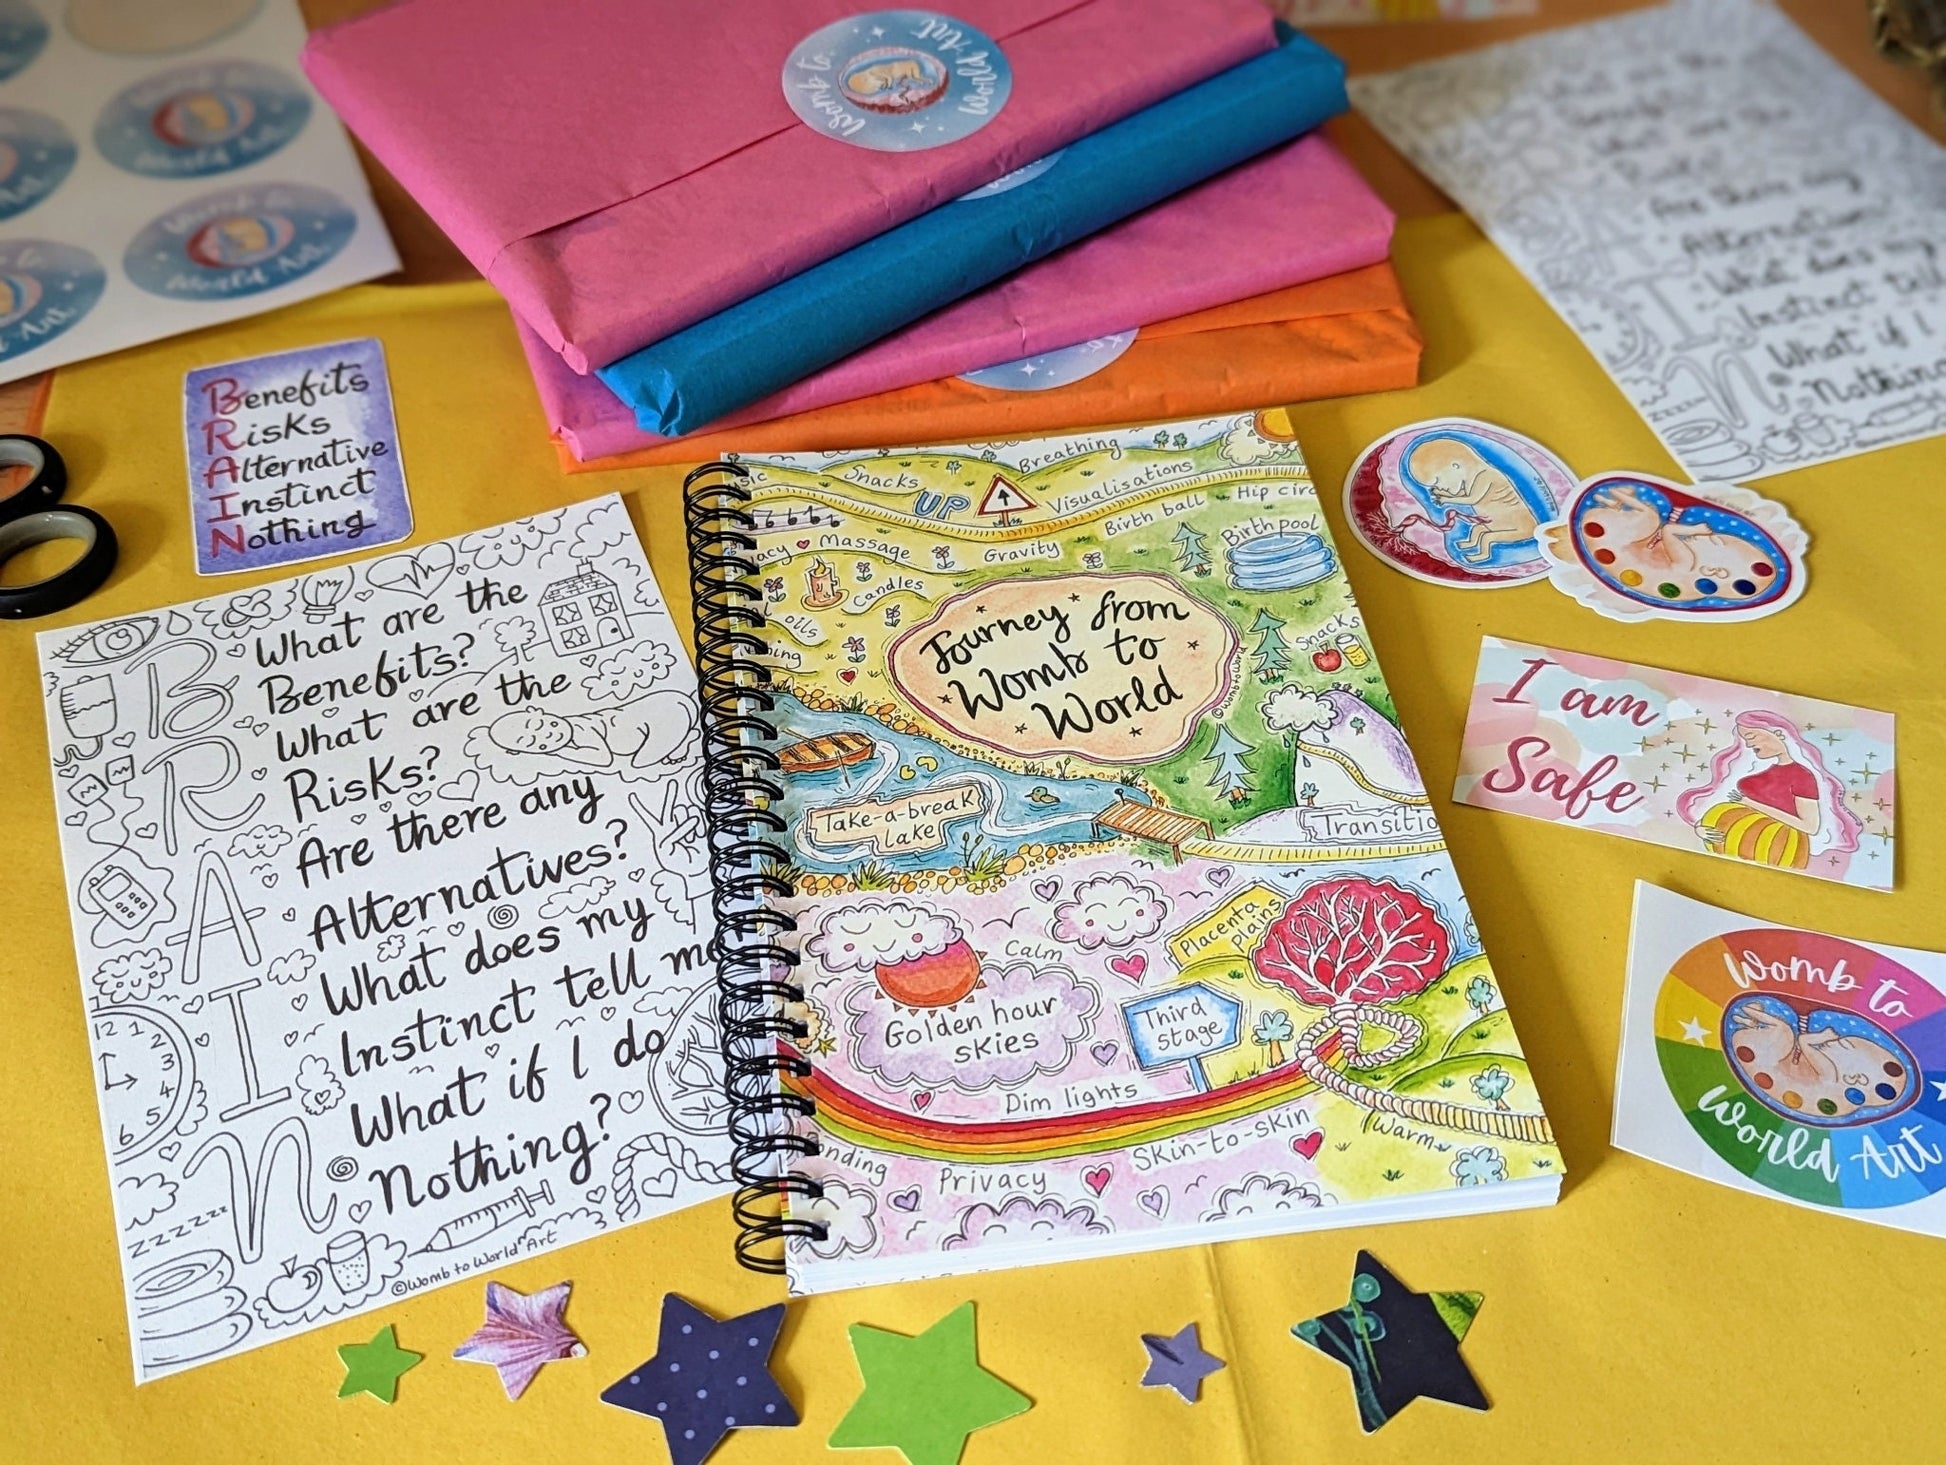 Womb to
World Art
World Art
Womb to
World Art
Benefits
Risks
Alternative
Instinct
Nothing
B
R
A
I
N
What are the
Benefits?
What are the
Risks?
Are there any
Alternatives?
What does my
Instinct tell me
What if I do
Nothing?
12 1
2
3
4
5
6
zzzzzzz
©Womb to World Art
Breathing
Snacks
UP
Visualisations
Hip circ
Birth ball
Birth pool
Massage
Gravity
Candles
oils
Snacks
Journey from
Womb to
World
©WombtoWorld
Take-a-break
lake
Transitio
Placenta
plains
Calm
Golden hour
skies
Third
stage
Dim lights
Warm
Skin-to-skin
Privacy
Are there any
Alternatives
What does my
Instinct tell
What if I
Nothing
I am
Safe
Womb to
World Art